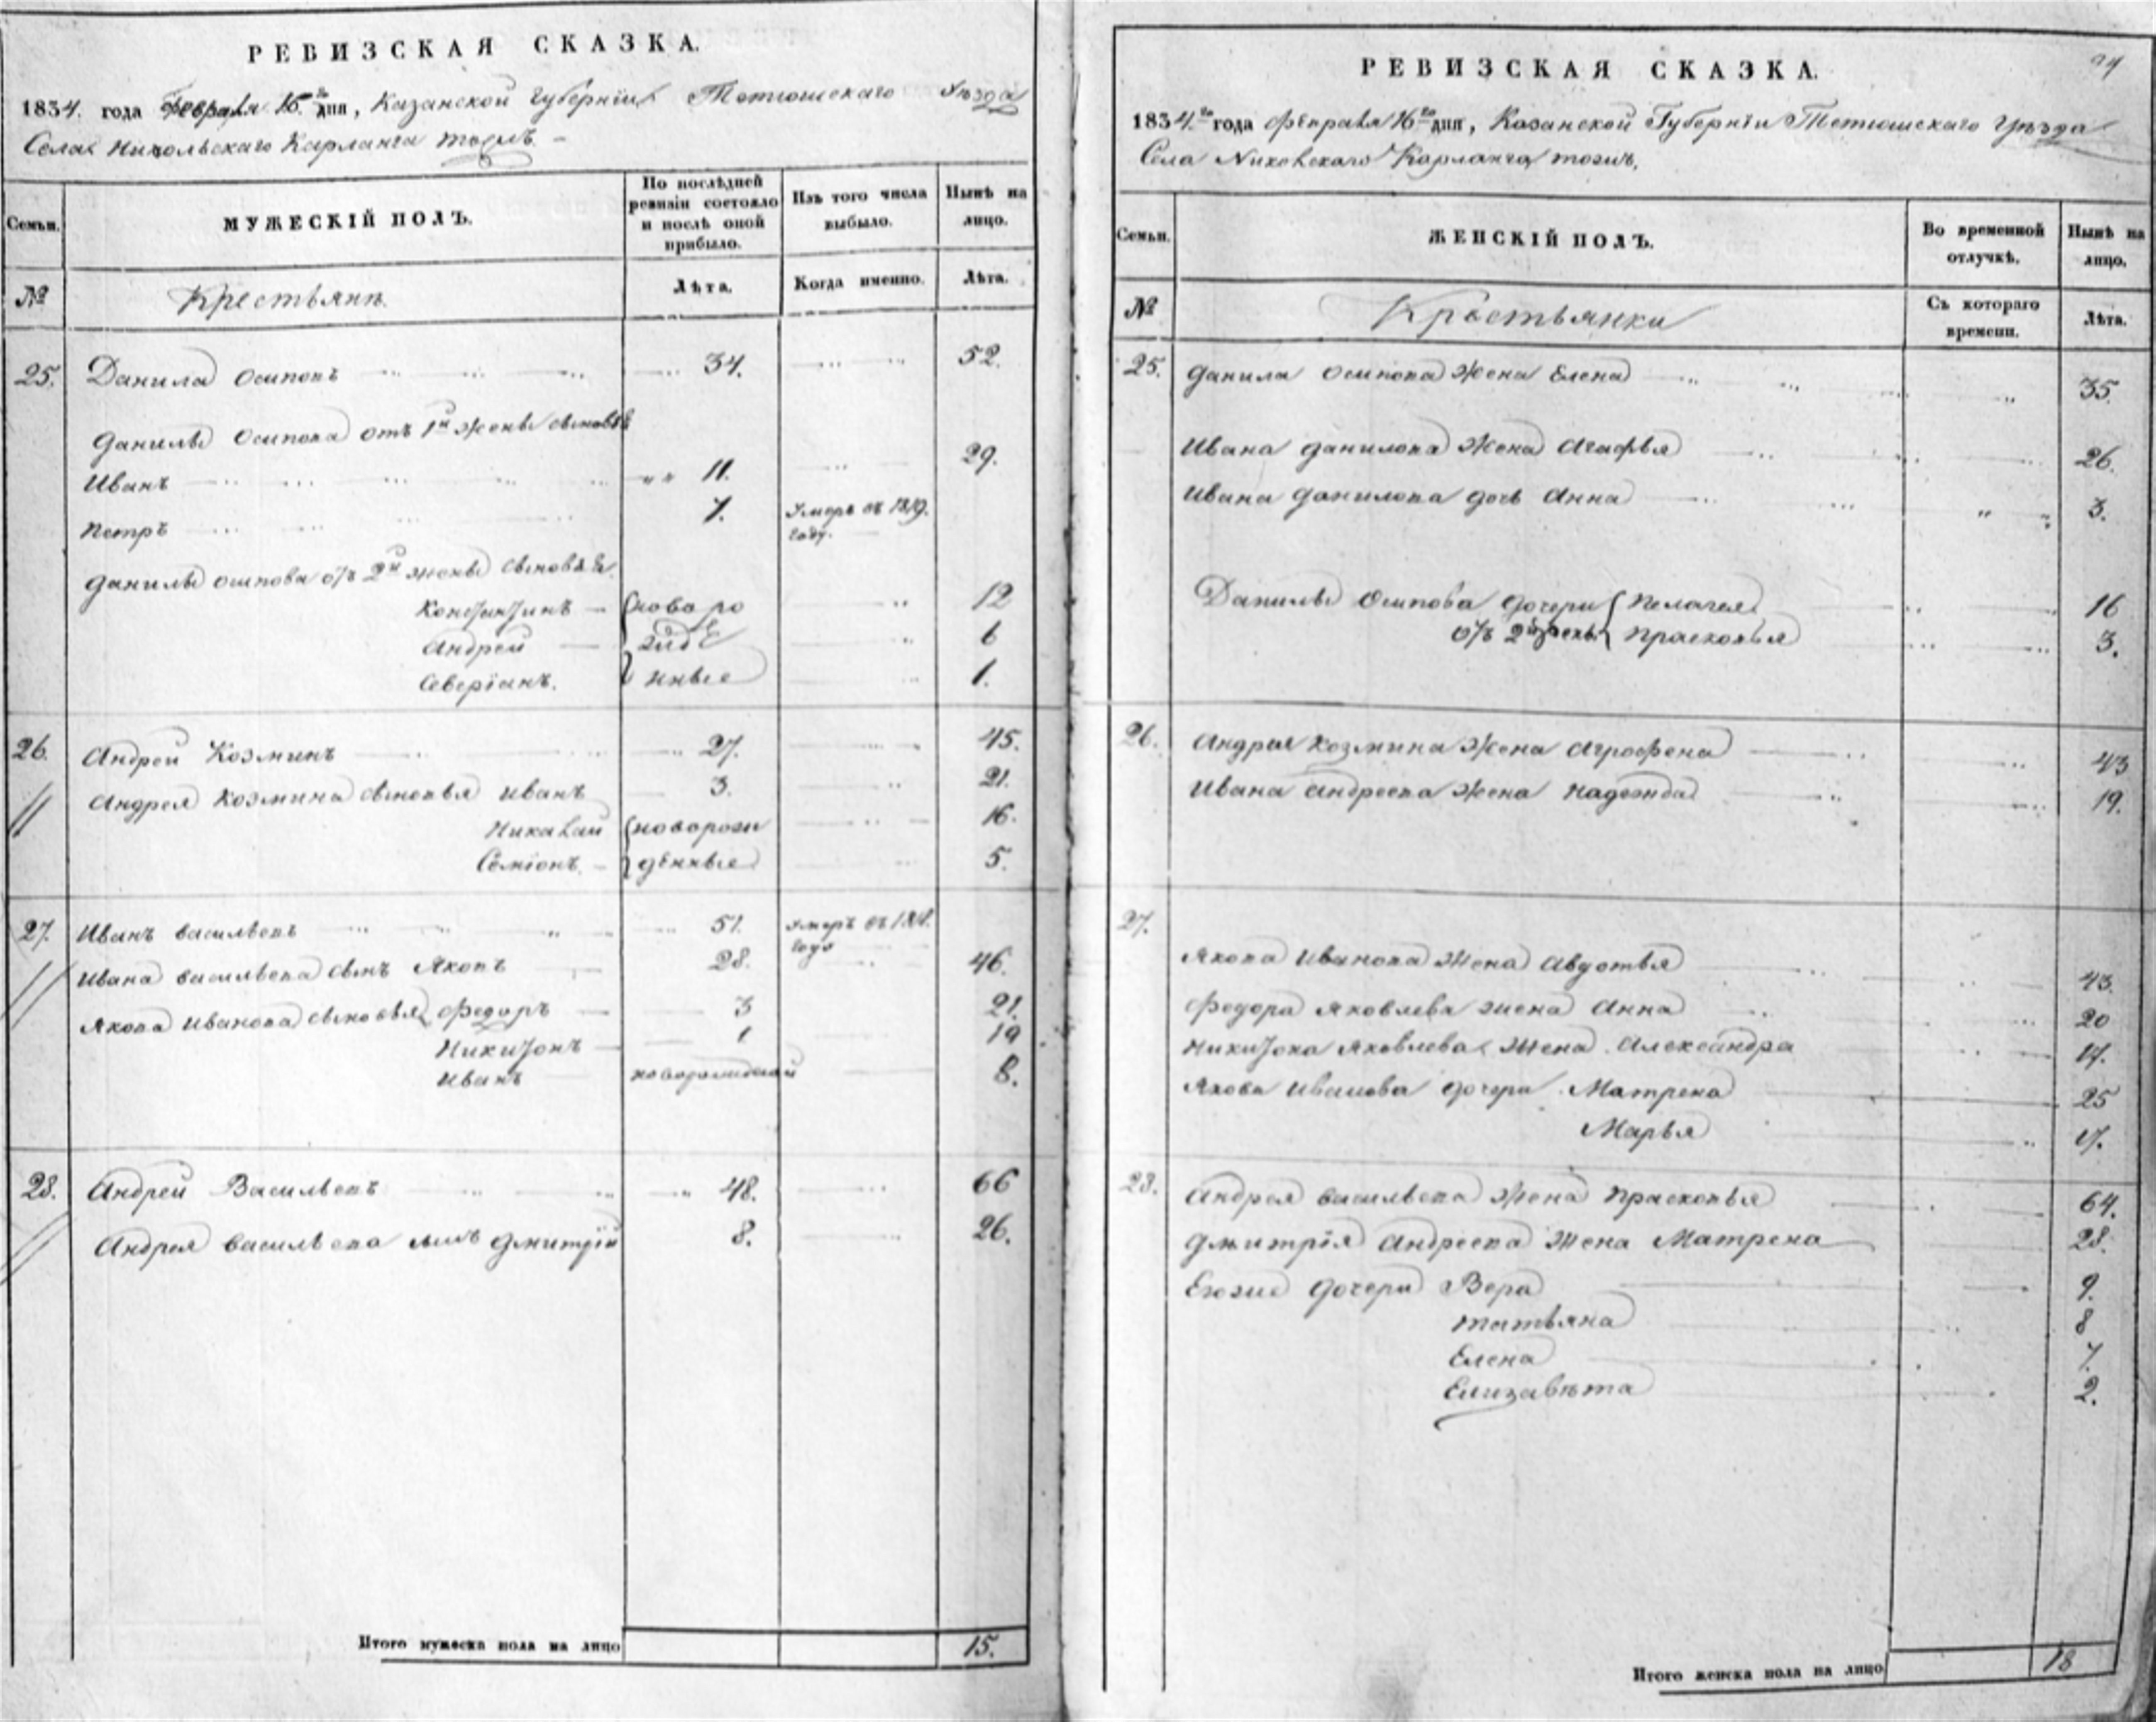 РЕВИЗСКАЯ СКАЗКА.
1834. года Февраля 16 го дня, Казанской Губерніи Тетюшскаго Уезда
Села Никольскаго Карланга тожъ
Семьи.
МУЖЕСКІЙ ПОЛЪ.
По послѣдней ревизіи состояло и послѣ оной прибыло.
Изъ того числа выбыло.
Нынѣ на лицо.
№
Крестьянъ
Лѣта.
Когда именно.
Лѣта.
25. Данила Осиповъ 34. 52.
Данилы Осипова отъ 1й жены сыновья
Иванъ 11. 29.
Петръ 7. Умеръ въ 1819. году.
Данилы Осипова отъ 2й жены сыновья
Константинъ новоро 12
Андрей жде 6
Северіанъ. нные 1.
26. Андрей Козминъ 27. 45.
Андрея Козмина сыновья Иванъ 3. 21.
Николай новорож 16.
Семіонъ. денные 5.
27. Иванъ Васильевъ 51. Умеръ въ году
Ивана Васильева сынъ Яковъ 28. 46.
Якова Иванова сыновья Федоръ 3 21.
Никитонъ 1 19
Иванъ новорожденный 8.
28. Андрей Васильевъ 48. 66
Андрея Васильева сынъ Дмитрій 8. 26.
Итого мужеска пола на лицо 15.
94
РЕВИЗСКАЯ СКАЗКА.
1834. го года Февраля 16 го дня, Казанской Губерніи Тетюшскаго Уезда
Села Никольскаго Карланга тожъ,
Семьи.
ЖЕНСКІЙ ПОЛЪ.
Во временной отлучкѣ.
Нынѣ на лицо.
№
Крестьянки
Съ котораго времени.
Лѣта.
25. Данила Осипова жена Елена 35.
Ивана Данилова жена Агафья 26.
Ивана Данилова дочь Анна 3.
Данилы Осипова дочери Пелагея 16
отъ 2й жены Прасковья 3.
26. Андрея Козмина жена Агрофена 43
Ивана Андреева жена Надежда 19.
27.
Якова Иванова жена Авдотья 43.
Федора Яковлева жена Анна 20
Никитона Яковлева жена Александра 17.
Якова Иванова дочери Матрена 25
Марья 17.
28. Андрея Васильева жена Прасковья 64.
Дмитрія Андреева жена Матрена 28.
Егоже дочери Вера 9.
Татьяна 8
Елена 7.
Елизавѣта 2.
Итого женска пола на лицо 18